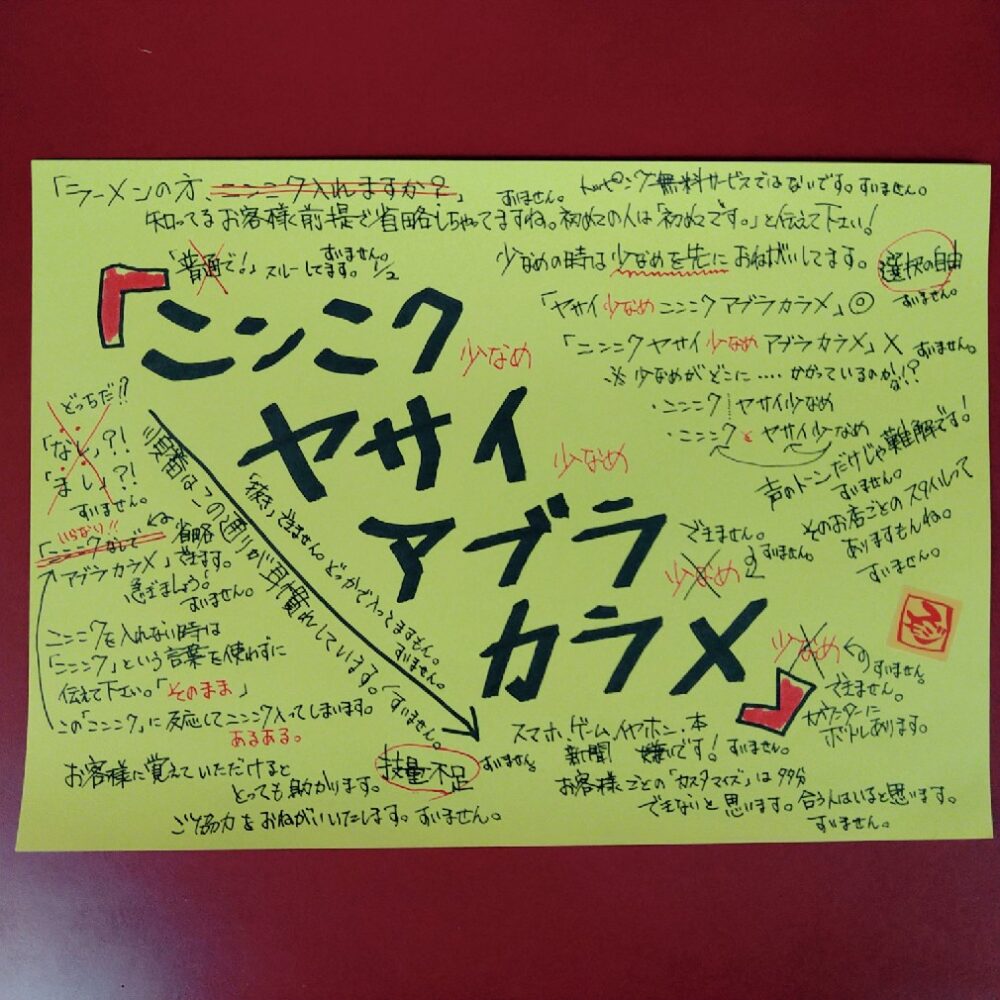 「ラーメンの方、ニンニク入れますか？」すいません。
知ってるお客様前提で省略しちゃってますね。初めての人は「初めてです。」と伝えて下さい！
トッピング無料サービスではないです。すいません。
「普通で！」スルーしてます。すいません。
少なめの時は少なめを先におねがいしてます。
選択の自由
すいません。
「ヤサイ少なめニンニクアブラカラメ」◎
「ニンニクヤサイ少なめアブラカラメ」× すいません。
※少なめがどこに‥‥かかっているのかな!?
・ニンニク ヤサイ少なめ
・ニンニクとヤサイ少なめ
声のトーンだけじゃ難解です！
すいません。
そのお店ごとのスタイルって
ありますもんね。
すいません。
「ニンニク 少なめ
ヤサイ 少なめ
アブラ 少なめ
できません。
すいません。
カラメ」 少なめ
すいません。
できません。
ボトルあります。
どっちだ!!
「なし」?!
「まし」?!
すいません。
いらなり!!
「ニンニクなしで 省略
アブラカラメ」できます。
急ぎましょう！
すいません。
順番はこの通りが耳慣れしています。すいません。
「抜き」できません。どっかで入ってますもん。すいません。
ニンニクを入れない時は
「ニンニク」という言葉を使わずに
伝えて下さい。「そのまま」
この「ニンニク」に反応してニンニク入ってしまいます。
あるある。
お客様に覚えていただけると
とっても助かります。
技量不足 すいません。
ご協力をおねがいいたします。すいません。
スマホ、ゲーム、イヤホン、本
新聞 嫌いです！すいません。
お客様ごとの「カスタマイズ」は99分
できないと思います。合う人はいると思います。
すいません。